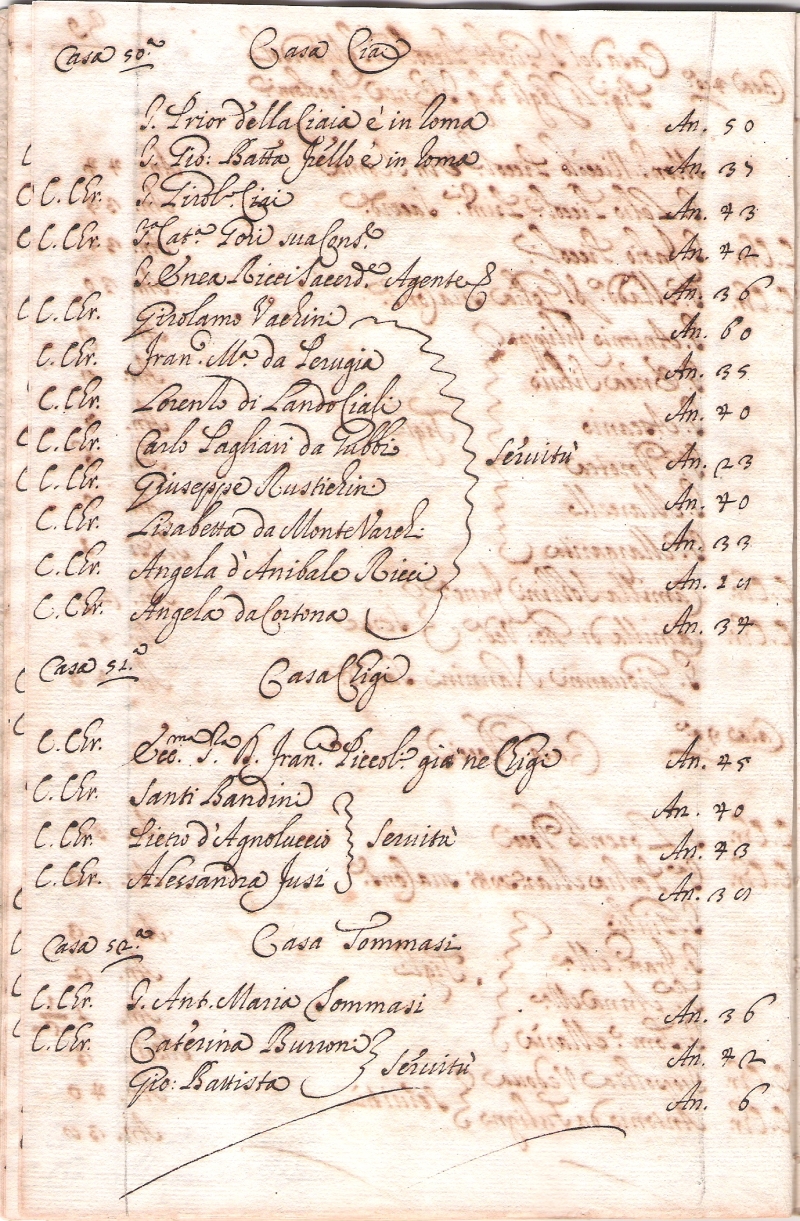 Casa 50.ª Casa Ciai
S. Prior della Ciaia è in Roma An. 50
S. Gio: Batta frello è in Roma An. 37
C. Chr. S. Girol.º Ciai An. 43
C. Chr. S.ª Cat.ª Gori sua Cons.e An. 42
S. Enea Ricci Sacerd.e Agente An. 36
C. Chr. Girolamo Vachini An. 60
C. Chr. Fran.º M.ª da Perugia An. 35
C. Chr. Lorenzo di Lando Ciali An. 40
C. Chr. Carlo Pagliari da Gubbi Servitù An. 23
C. Chr. Giuseppe Rustichini An. 40
C. Chr. Lisabetta da Monte Varch. An. 33
C. Chr. Angela d'Anibale Ricci An. 29
C. Chr. Angela da Cortona An. 34
Casa 51.ª Casa Chigi
C. Chr. Ecc.ma S.ra D. Fran.ca Piccol.ni ne Chigi An. 45
C. Chr. Santi Bandini An. 40
C. Chr. Pietro d'Agnoluccio Servitù An. 43
C. Chr. Alessandra Jusi An. 39
Casa 52.ª Casa Tommasi
C. Chr. S. Ant. Maria Tommasi An. 36
C. Chr. Caterina Burroni An. 42
Gio: Battista Servitù An. 6